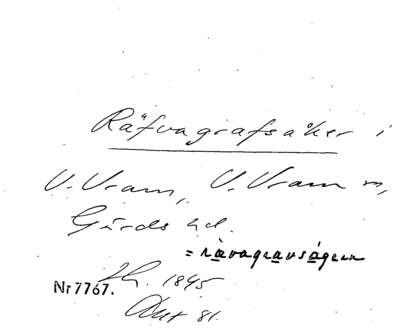 Räfvagrafsåker i
V. Vram, V. Vram s,
Gärds hd.
= rävagravsågern
1845
Nr 7767.
Akt 81.